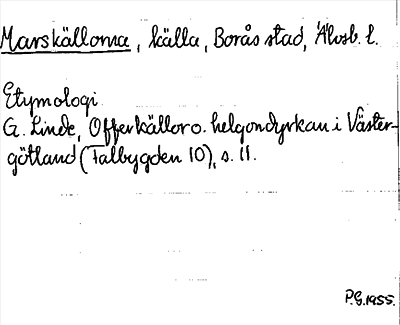 Marskällorna, källa, Borås stad, Älvsb. l.
Etymologi
G. Linde, Offerkällor o. helgondyrkan i Väster-
götland (Falbygden 10), s. 11.
P.G. 1955.